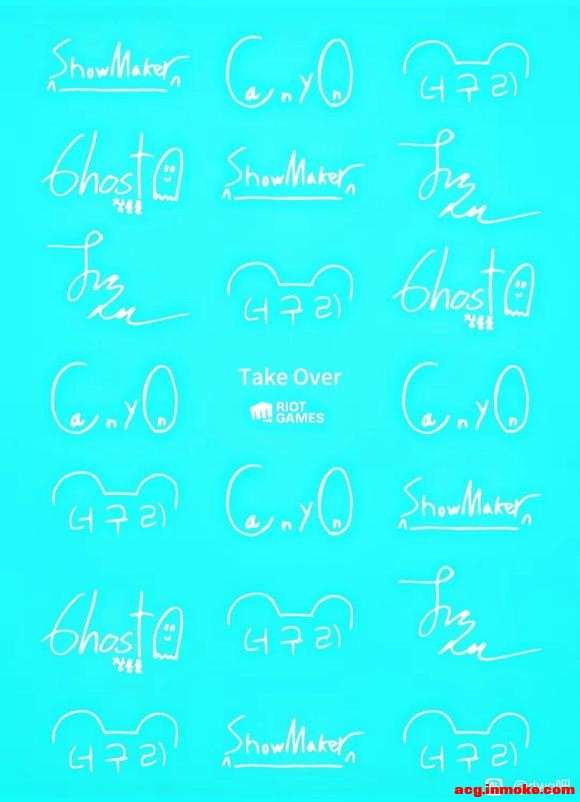 ShowMaker
CanyOn
너구리
Ghost
장용준
ShowMaker
너구리
Ghost
장용준
CanyOn
Take Over
RIOT
GAMES
CanyOn
너구리
CanyOn
ShowMaker
Ghost
장용준
너구리
너구리
ShowMaker
너구리
acg.inmoke.com